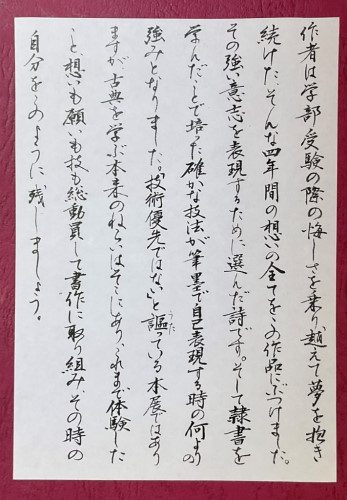 作者は学部受験の際の悔しさを乗り越えて夢を抱き
続けた。そんな四年間の想いの全てをこの作品にぶつけました。
その強い意志を表現するために選んだ詩です。そして隷書を
学んだことで培った確かな技法が筆墨で自己表現する時の何よりの
強みとなりました。“技術優先ではない”と謳っている本展ではあり
うた
ますが古典を学ぶ本来のねらいはそこにあり、これまで体験した
こと、想いも願いも技も総動員して書作に取り組み、その時の
自分をこのように残しましょう。